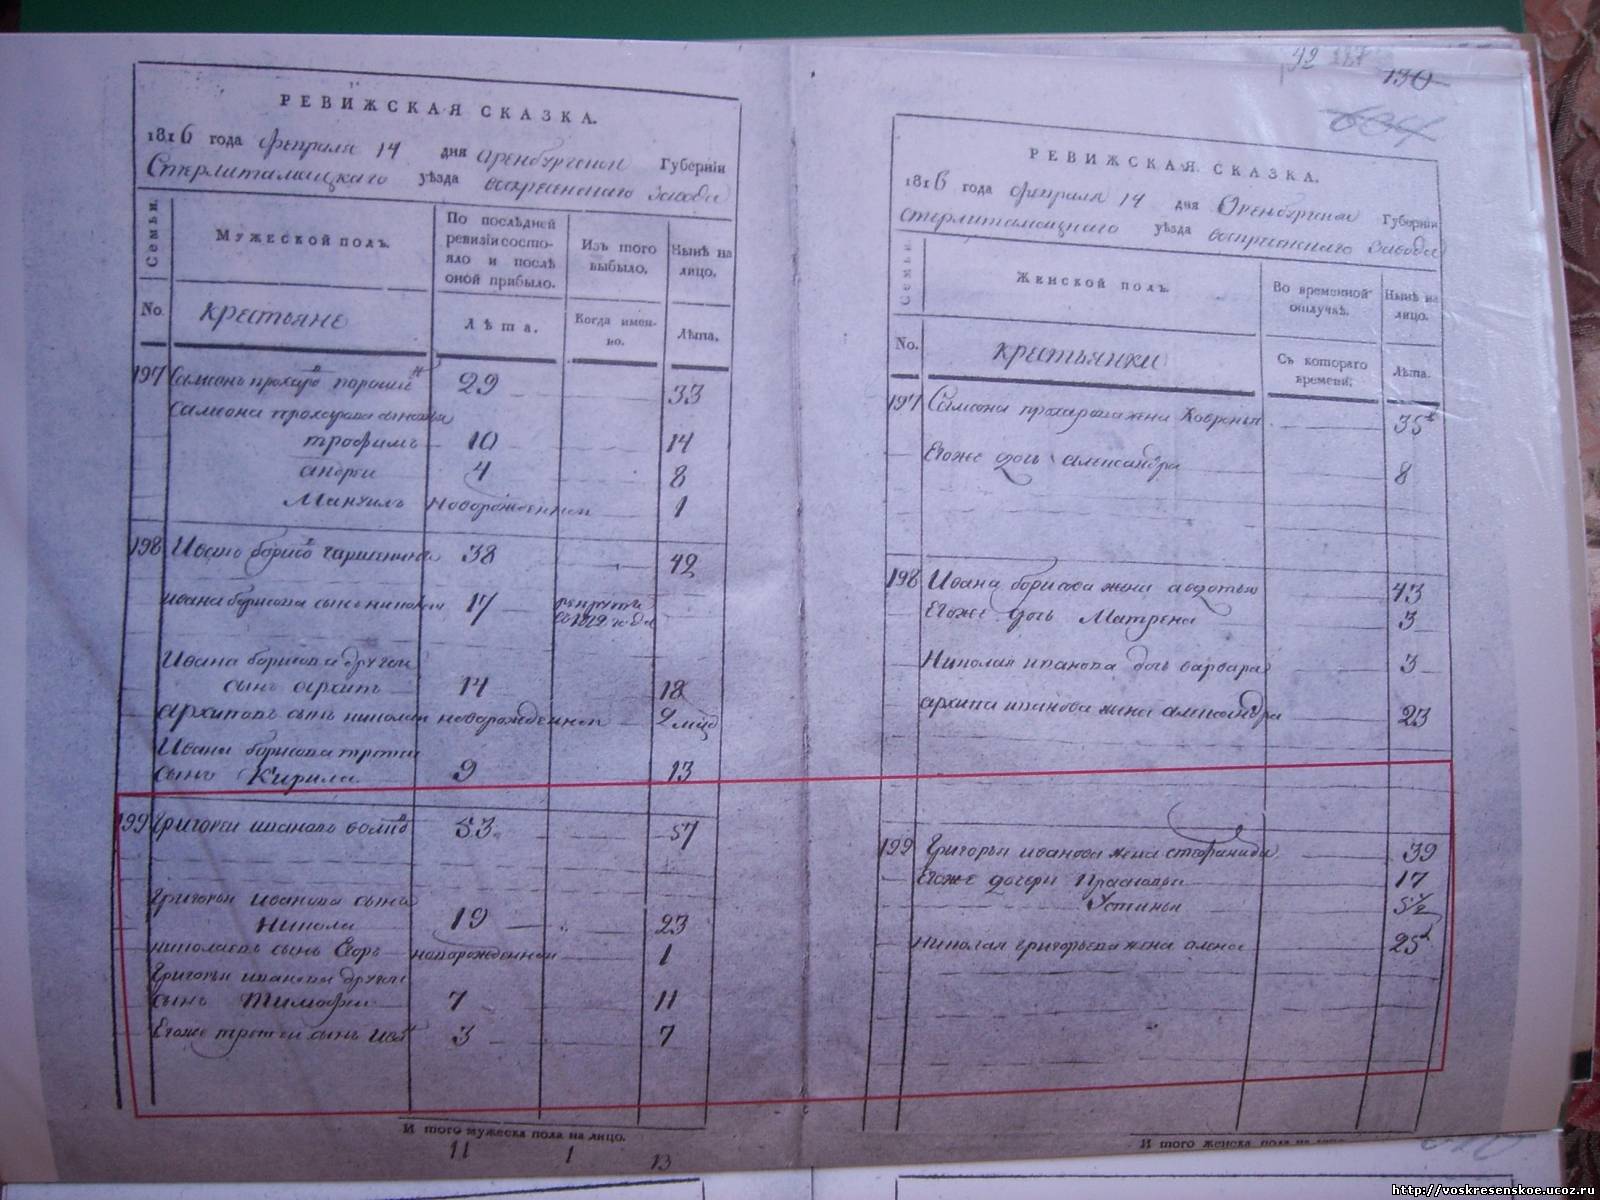 42 127
130
604
РЕВИЖСКАЯ СКАЗКА.
1816 года февраля 14 дня Оренбургской Губернїи
Стерлитамацкаго уѣзда воскресенскаго завода
Семьи.
МУЖЕСКОЙ ПОЛЪ.
По послѣдней ревизїи состояло и послѣ оной прибыло.
Изъ того выбыло.
Нынѣ на лицо.
No.
крестьяне
Лѣта.
Когда именно.
Лѣта.
197 Самсонъ прохаровъ 29 33
Самсона прохарова сыновья
трофимъ 10 14
андреи 4 8
Мануилъ новорожденной 1
198 Иванъ борисовъ 38 42
ивана борисова сынъ николай 17 рекруты 1812 года
Ивана борисова другой
сынъ архипъ 14 18
архиповъ сынъ николай новорожденной 2 мцд
Ивана борисова третей
сынъ Кирила 9 13
199 Григорей ивановъ 53 57
Григорья иванова сынъ
Никола 19 23
николаевъ сынъ Егоръ новорожденной 1
Григорья иванова другой
сынъ Тимофей 7 11
Егоже третей сынъ Иван 3 7
И того мужеска пола на лицо.
11 1 13
РЕВИЖСКАЯ СКАЗКА.
1816 года февраля 14 дня Оренбургской Губернїи
Стерлитамацкаго уѣзда воскресенскаго завода
Семьи.
ЖЕНСКОЙ ПОЛЪ.
Во временной отлучкѣ.
Нынѣ на лицо.
No.
крестьянки
Съ котораго времени.
Лѣта.
197 Самсона прохарова жена 35
Егоже дочь александра 8
198 Ивана борисова жена авдотья 43
Егоже дочь Матрена 3
Николая иванова дочь варвара 3
архипа иванова жена александра 23
199 Григорья иванова жена стефанида 39
Егоже дочери Прасковья 17
Устинья 5½
николая григорьева жена алена 25
И того женска пола на лицо
http://voskresenskoe.ucoz.ru